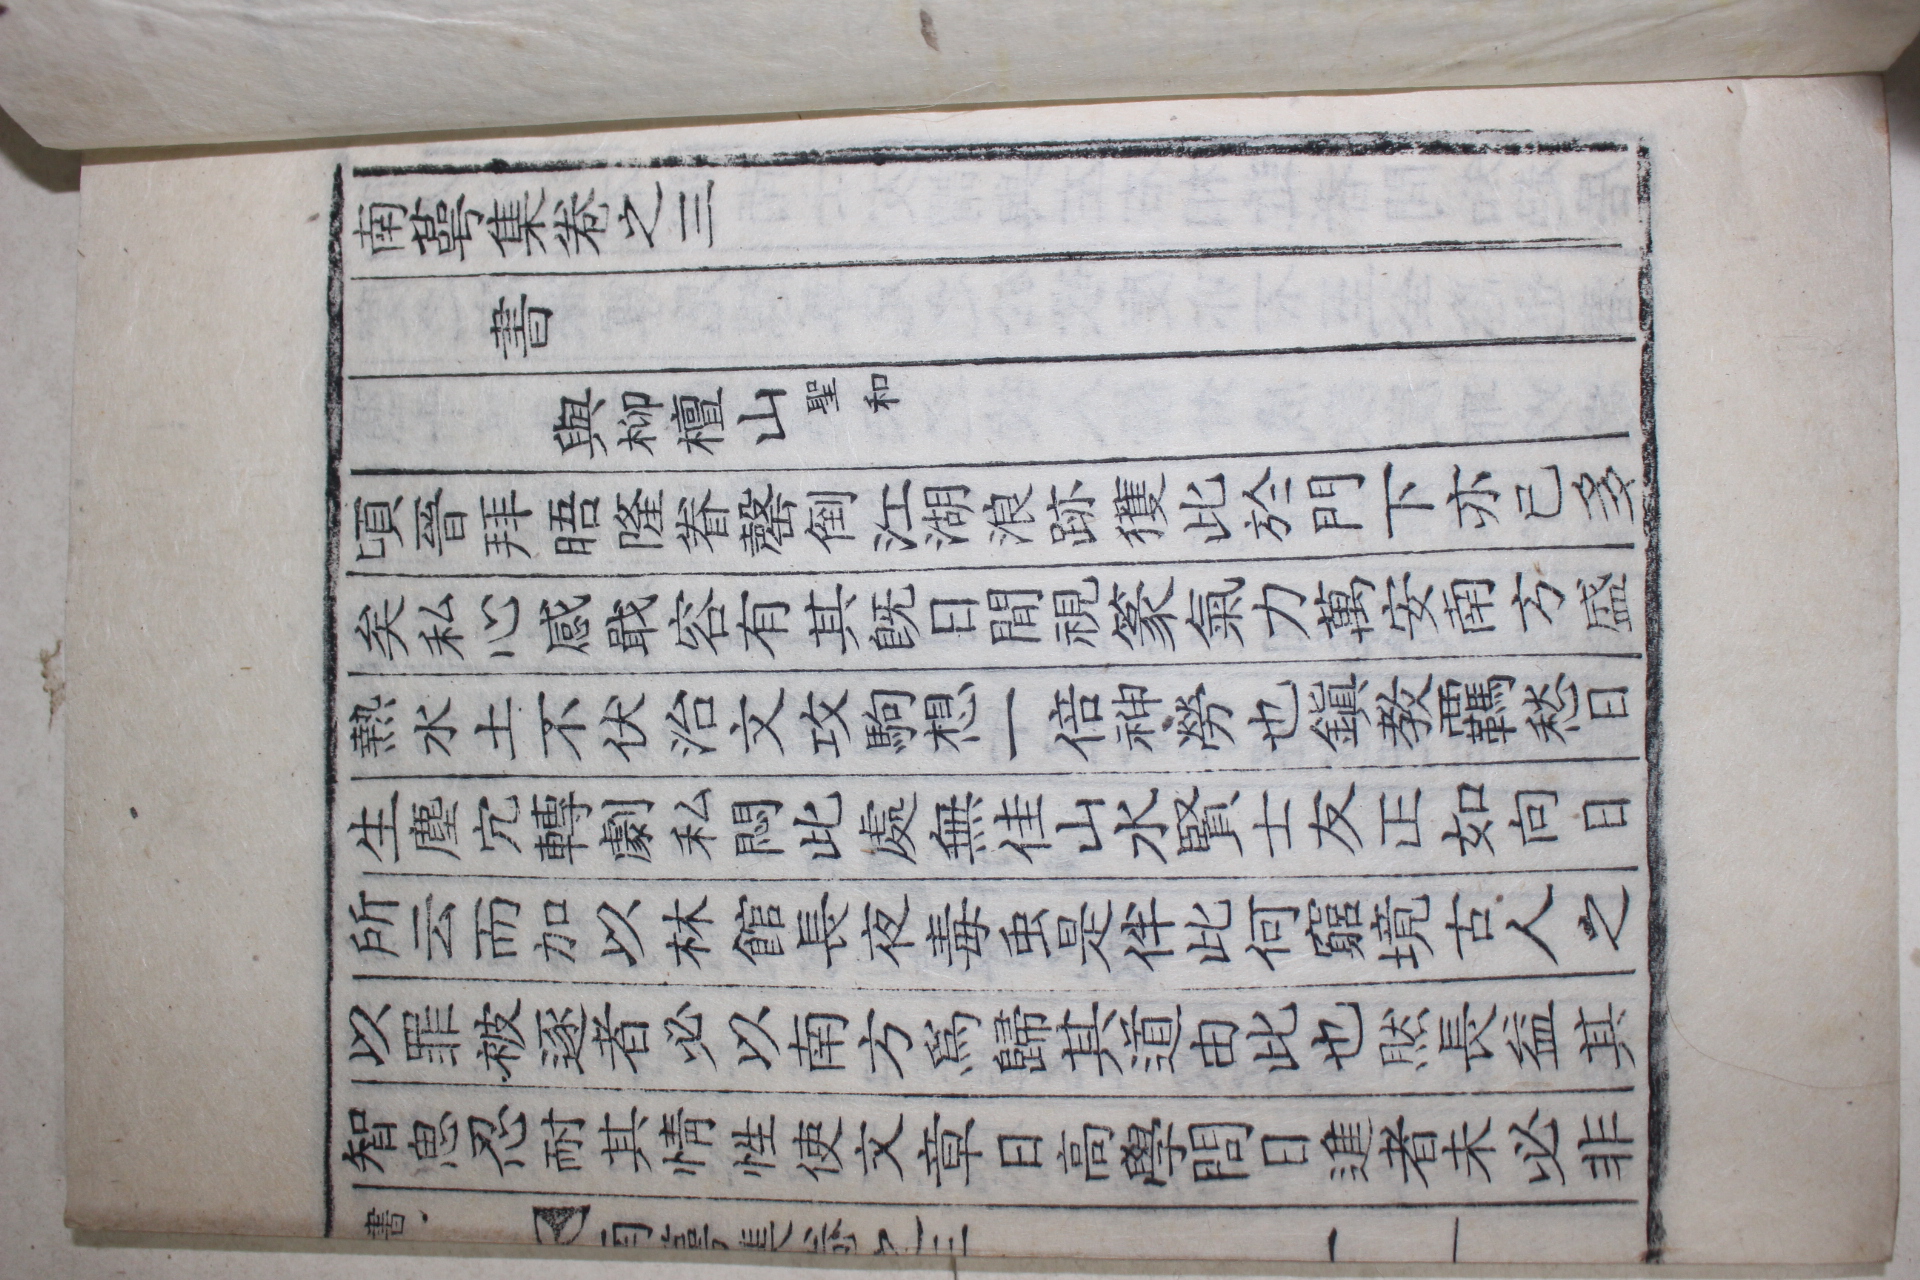 南萼集卷之三
書
與柳檀山聖和
頃晉拜晤隆眷罄倒江湖浪跡獲此於門下亦已多
矣私心感戢容有其旣日間視篆氣力萬安南方盛
熱水土不伏治文攻駒想一倍神勞也鎭教羈愁日
生塵冗轉劇私悶此處無佳山水賢士友正如向日
所云而加以林館長夜毒虫是伴此何窮境古人之
以罪被逐者必以南方爲歸其道由此也然長益其
智思忍耐其情性使文章日高學問日進者未必非
書 南萼集卷之三 一